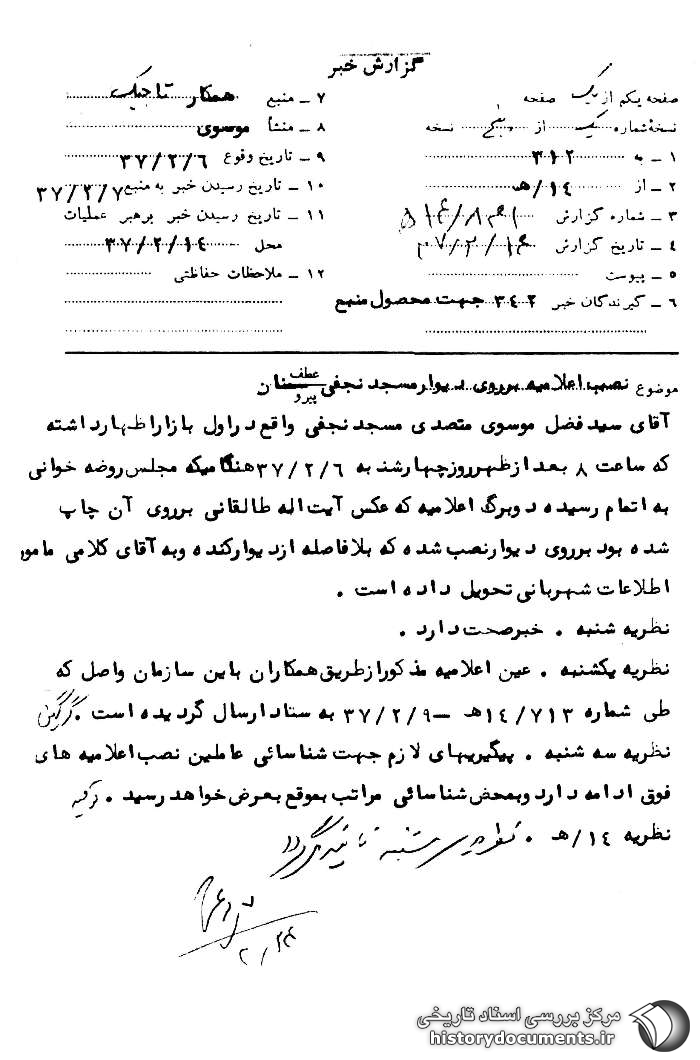 گزارش خبر
صفحه یکم از یک صفحه
نسخهٔ شماره یک از پنج نسخه
۱ ـ به ۳۱۲
۲ ـ از ۱۴/هـ
۳ ـ شماره گزارش
۴ ـ تاریخ گزارش ۳۷/۲/۱۴
۵ ـ پیوست
۶ ـ گیرندگان خبر ۳۴۲ جهت محصول منبع
۷ ـ منبع همکار تاجیک
۸ ـ منشأ موسوی
۹ ـ تاریخ وقوع ۳۷/۲/۶
۱۰ ـ تاریخ رسیدن خبر به منبع ۳۷/۲/۷
۱۱ ـ تاریخ رسیدن خبر برهبر عملیات
محل ۳۷/۲/۱۴
۱۲ ـ ملاحظات حفاظتی
موضوع نصب اعلامیه برروی دیوار مسجد نجفی سمنان
عطف
پیرو
آقای سید فضل موسوی متصدی مسجد نجفی واقع در اول بازار اظهار داشته
که ساعت ۸ بعد از ظهر روز چهارشنبه ۳۷/۲/۶ هنگامیکه مجلس روضه خوانی
به اتمام رسیده دو برگ اعلامیه که عکس آیت اله طالقانی برروی آن چاپ
شده بود برروی دیوار نصب شده که بلافاصله از دیوار کنده و به آقای کلامی مامور
اطلاعات شهربانی تحویل داده است .
نظریه شنبه . خبر صحت دارد .
نظریه یکشنبه . عین اعلامیه مذکور از طریق همکاران باین سازمان واصل که
طی شماره ۱۴/۷۱۳هـ ـ ۳۷/۲/۹ به ستاد ارسال گردیده است .
نظریه سه شنبه . پیگیریهای لازم جهت شناسائی عاملین نصب اعلامیه های
فوق ادامه دارد و بمحض شناسائی مراتب بموقع بعرض خواهد رسید .
نظریه ۱۴/هـ . نظریه سه شنبه تائید میگردد
مرکز بررسی اسناد تاریخی
historydocuments.ir